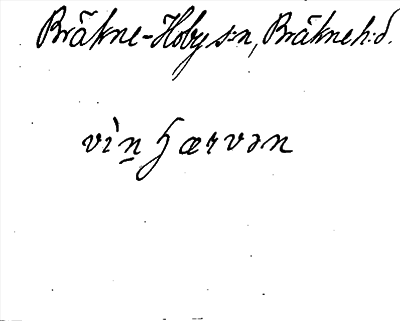 Bräkne-Hoby s:n, Bräkne h:d.
vìn̲ ɧærvən